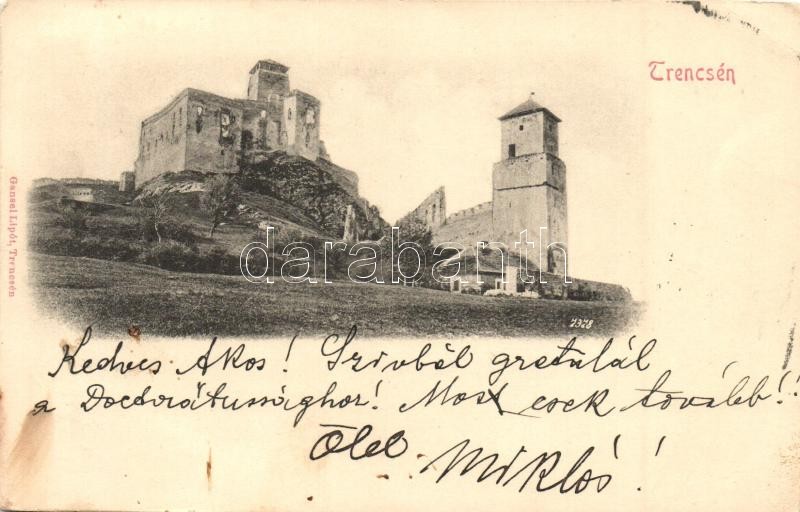 Trencsén
Gansel Lipót, Trencsén
darabanth
7378
Kedves Akos! Szivből gretulál
a Doctorátussághoz! Most csek tovább!!
Ölel
Miklós!